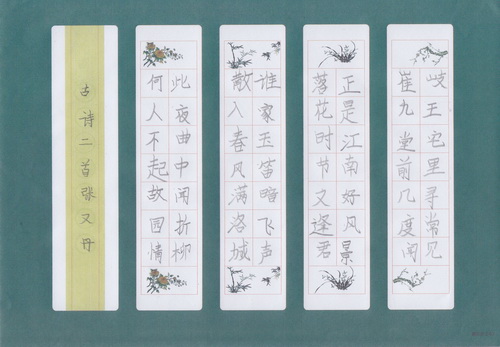 岐王宅里寻常见
崔九堂前几度闻
正是江南好风景
落花时节又逢君
谁家玉笛暗飞声
散入春风满洛城
此夜曲中闻折柳
何人不起故园情
古诗二首张又丹